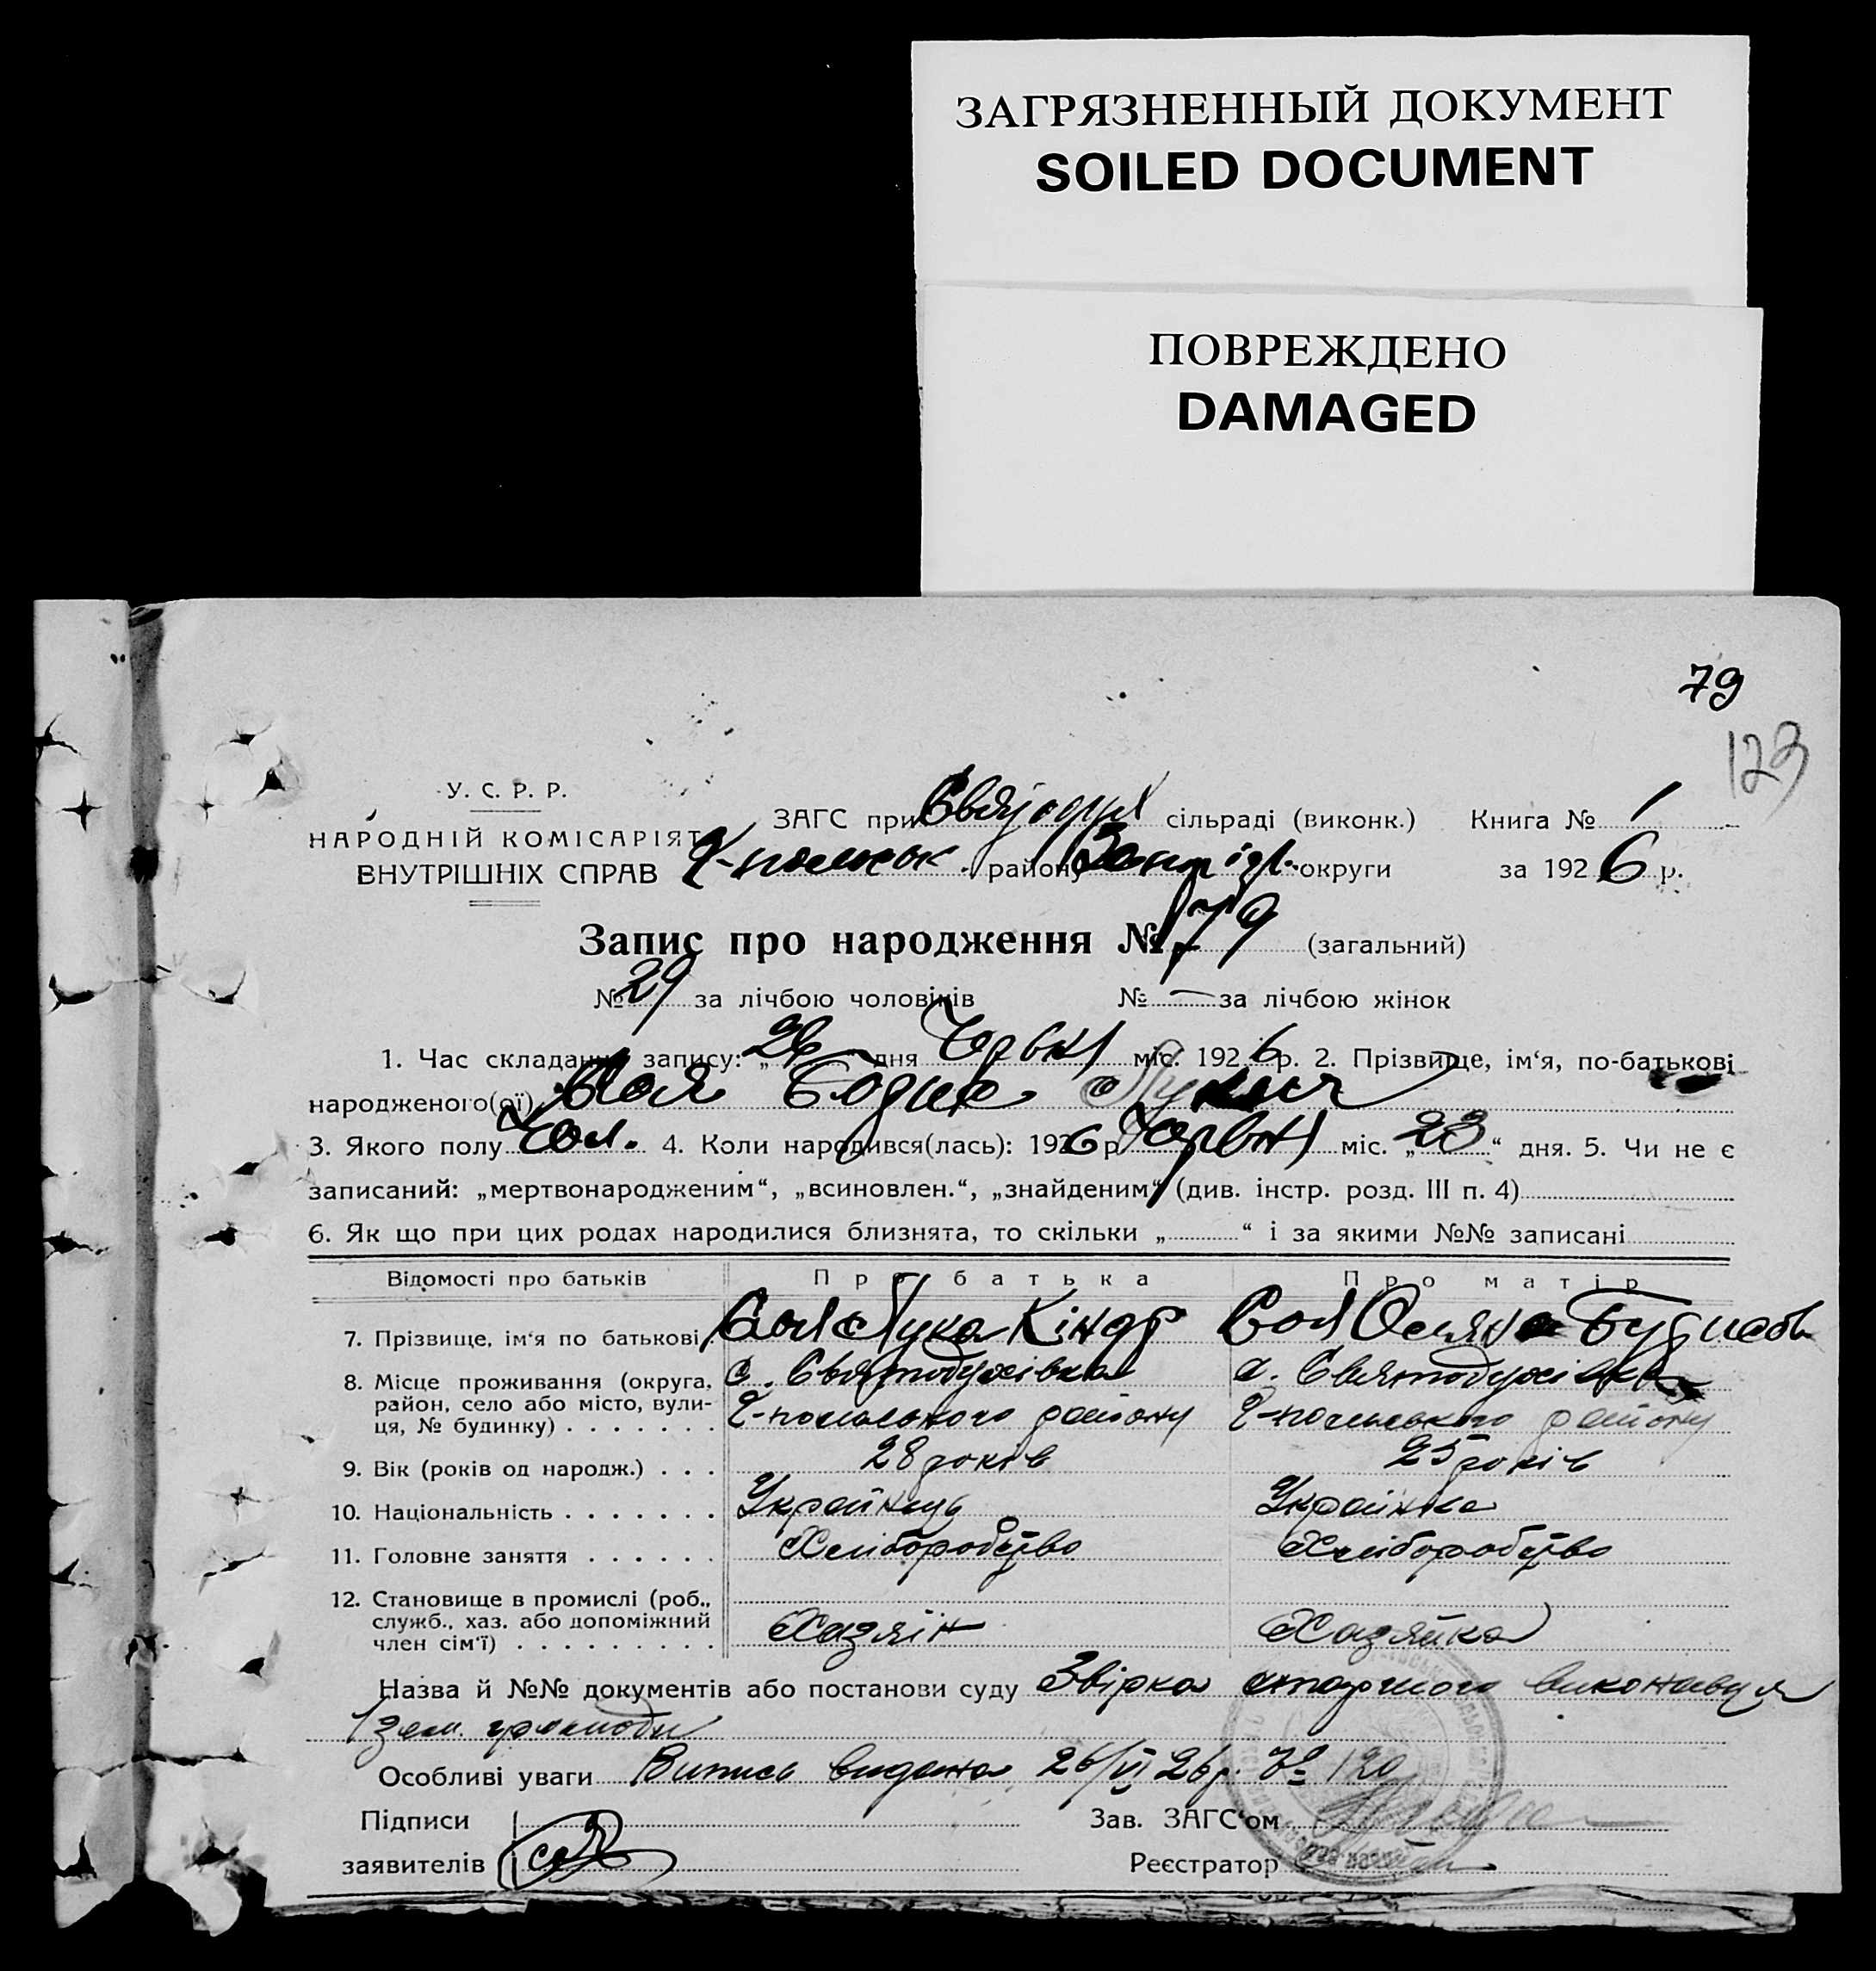 ЗАГРЯЗНЕННЫЙ ДОКУМЕНТ
SOILED DOCUMENT
ПОВРЕЖДЕНО
DAMAGED
79
123
У. С. Р. Р.
НАРОДНІЙ КОМІСАРІЯТ
ВНУТРІШНІХ СПРАВ
ЗАГС при сільраді (виконк.) Книга № 1
района округи за 1926 р.
Запис про народження № 79 (загальний)
№ 29 за лічбою чоловіків № — за лічбою жінок
1. Час складання запису: „26“ дня Червн міс. 1926 р. 2. Прізвище, ім‘я, по-батькові
народженого(ої)
3. Якого полу Чол. 4. Коли народився(лась): 1926 р. Червн міс. „23“ дня. 5. Чи не є
записаний: „мертвонародженим“, „всиновлен.“, „знайденим“ (див. інстр. розд. III п. 4)
6. Як що при цих родах народилися близнята, то скільки „ “ і за якими №№ записані
Відомості про батьків Про батька Про матір
7. Прізвище, ім‘я по батькові Лука Кіндр
8. Місце проживання (округа, район, село або місто, вулиця, № будинку) с. Святодухівка с. Святодухівка
Ч-польського району Ч-польського району
9. Вік (років од народж.) 28 років 25 років
10. Національність Українець Українка
11. Головне заняття Хліборобство Хліборобство
12. Становище в промислі (роб., служб., хаз. або допоміжний член сім‘ї) Хазяїн Хазяйка
Назва й №№ документів або постанови суду Звірка старшого виконавця
1 зем. громади
Особливі уваги Випись видана 26/VI 26 р. № 120
Підписи
заявителів
Зав. ЗАГС‘ом
Реєстратор